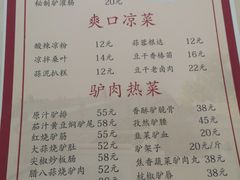 秘制驴灌肠 20元
爽口凉菜
酸辣凉粉 12元 蒜蓉根达 12元
凉拌桑叶 14元 豆干香椿苗 16元
蒜泥扒糕 12元 豆干老卤肉 22元
驴肉热菜
原汁驴排 55元 香酥驴脆骨 38元
茄汁黄豆焖驴尾 58元 孜然驴腰 45元
红烧驴筋 55元 韭菜驴血 20元
大蒜烧驴肚 52元 驴架子 20元/斤
尖椒炒板肠 58元 焦香蔬菜驴肉丸 38元
腊八蒜烧驴肉 58元 椒驴唇 38元